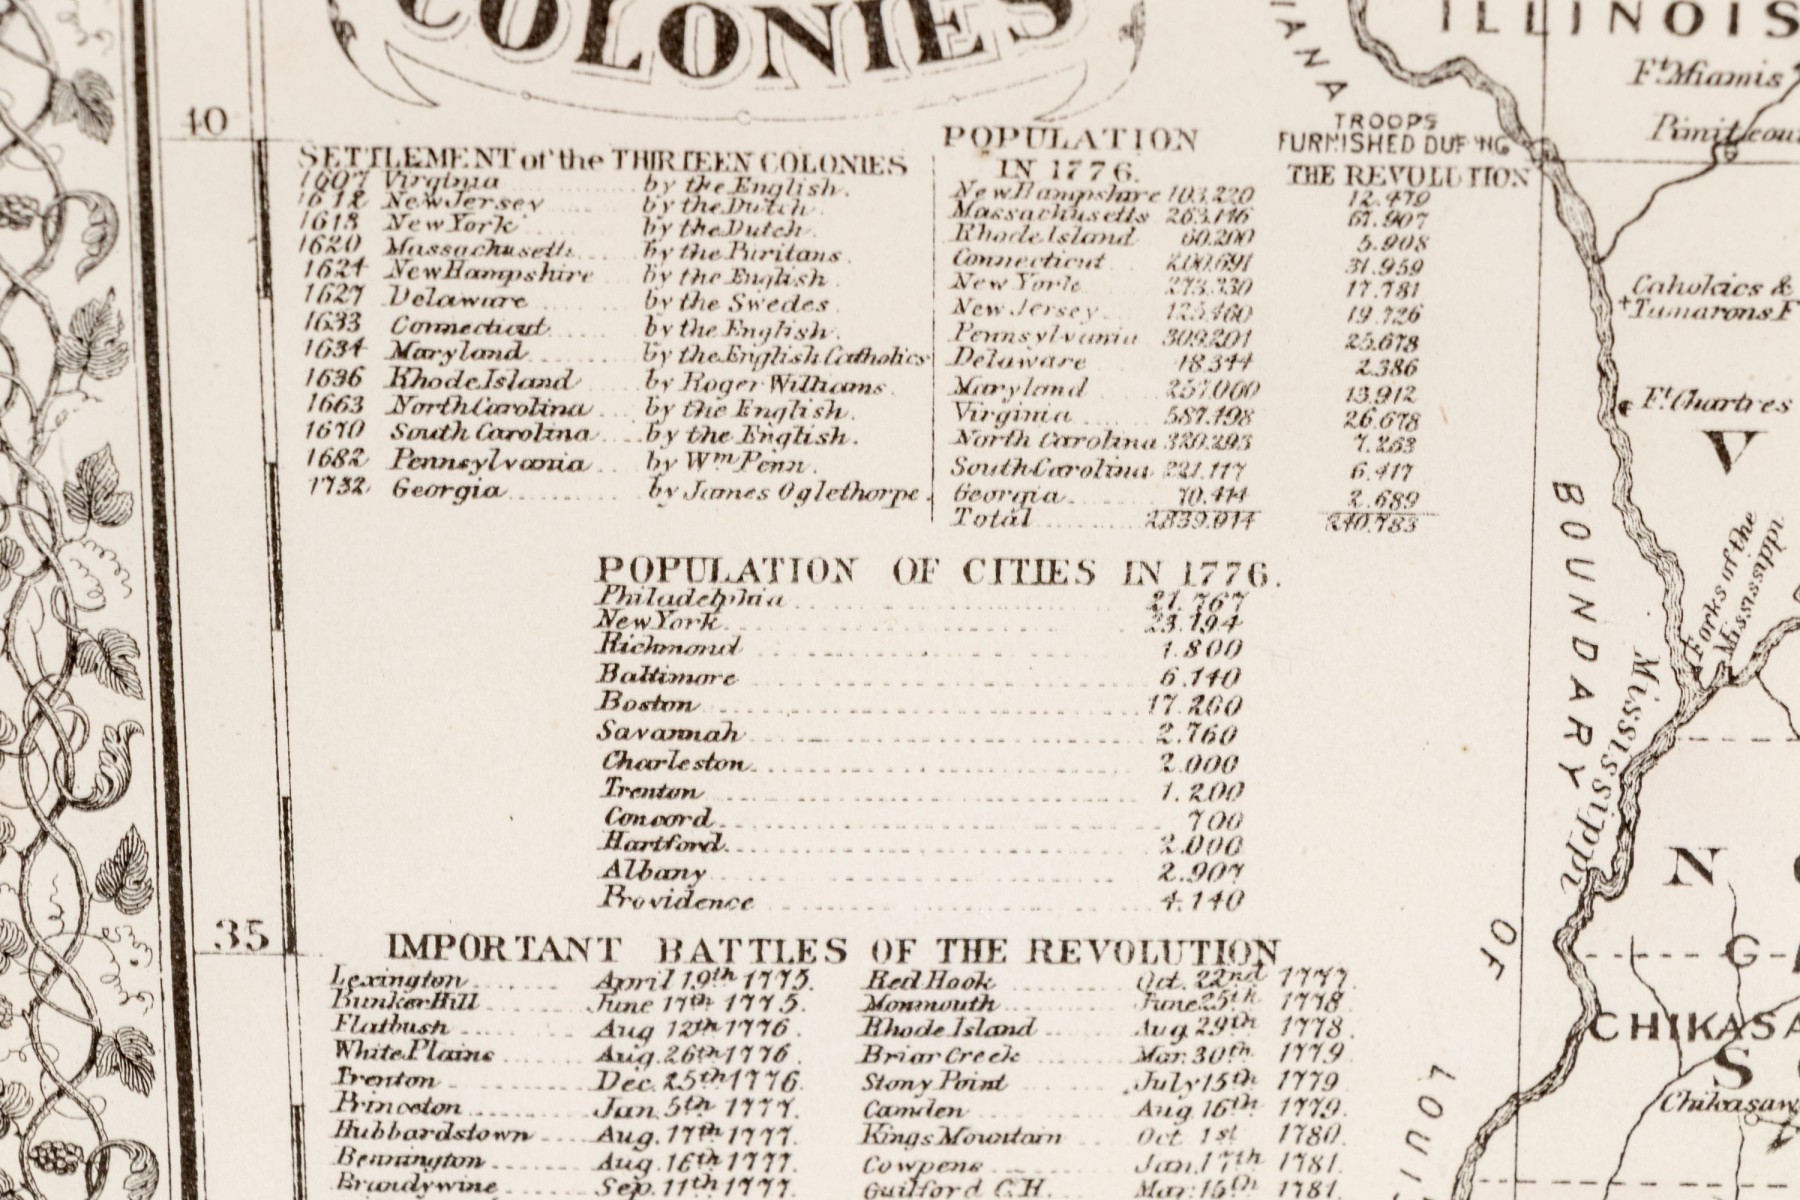 COLONIES
40
SETTLEMENT of the THIRTEEN COLONIES
1607 Virginia by the English.
New Jersey by the Dutch.
1613 New York by the Dutch.
1620 Massachusetts by the Puritans.
1624 New Hampshire by the English.
1627 Delaware by the Swedes.
1633 Connecticut by the English.
1634 Maryland by the English Catholics
1636 Rhode Island by Roger Williams.
1663 North Carolina by the English.
1670 South Carolina by the English.
1682 Pennsylvania by Wm Penn.
1732 Georgia by James Oglethorpe.
POPULATION
IN 1776.
TROOPS
FURNISHED DURING
THE REVOLUTION
New Hampshire 12.479
Massachusetts 67.907
Rhode Island 60.200 5.908
Connecticut 200.691 31.959
New York 273.330 17.781
New Jersey 19.726
Pennsylvania 309.201 25.678
Delaware 18.344 2.386
Maryland 257.000 13.912
Virginia 587.498 26.678
North Carolina 320.293 7.263
South Carolina 221.117 6.417
Georgia 70.414 2.689
Total 2.839.914 240.783
POPULATION OF CITIES IN 1776.
Philadelphia 21.767
New York 23.194
Richmond 1.800
Baltimore 6.140
Boston 17.260
Savannah 2.760
Charleston 2.000
Trenton 1.200
Concord 700
Hartford 2.000
Albany 2.907
Providence 4.140
35
IMPORTANT BATTLES OF THE REVOLUTION
Lexington April 19th 1775. Red Hook Oct. 22nd 1777.
Bunker Hill June 17th 1775. Monmouth June 25th 1778.
Flatbush Aug 12th 1776. Rhode Island Aug. 29th 1778.
White Plains Aug. 26th 1776. Briar Creek Mar. 30th 1779.
Trenton Dec. 25th 1776. Stony Point July 15th 1779
Princeton Jan. 5th 1777. Camden Aug. 16th 1779.
Hubbardstown Aug. 17th 1777. Kings Mountain Oct 1st 1780.
Bennington Aug. 16th 1777. Cowpens Jan. 17th 1781.
Brandywine Sep. 11th 1777. Guilford C.H. Mar. 15th 1781.
IANA
ILLINOIS
Ft. Miamis
Pimiteoui
Cahokies &
Tamarons F
Ft. Chartres
V
BOUNDARY
OF
LOUI
Forks of the
Mississippi
Mississippi
N
G
CHIKASA
S
Chikasaw